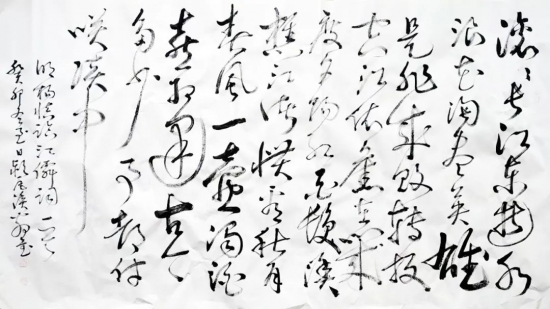 滚々长江东逝水
浪花淘尽英雄
是非成败转头
空 依旧在几
度夕阳红白发渔
樵江渚惯看秋月
春风一壶浊酒
喜相逢古今
多少事都付
笑谈中
明杨慎临江仙词一首
癸卯冬至日